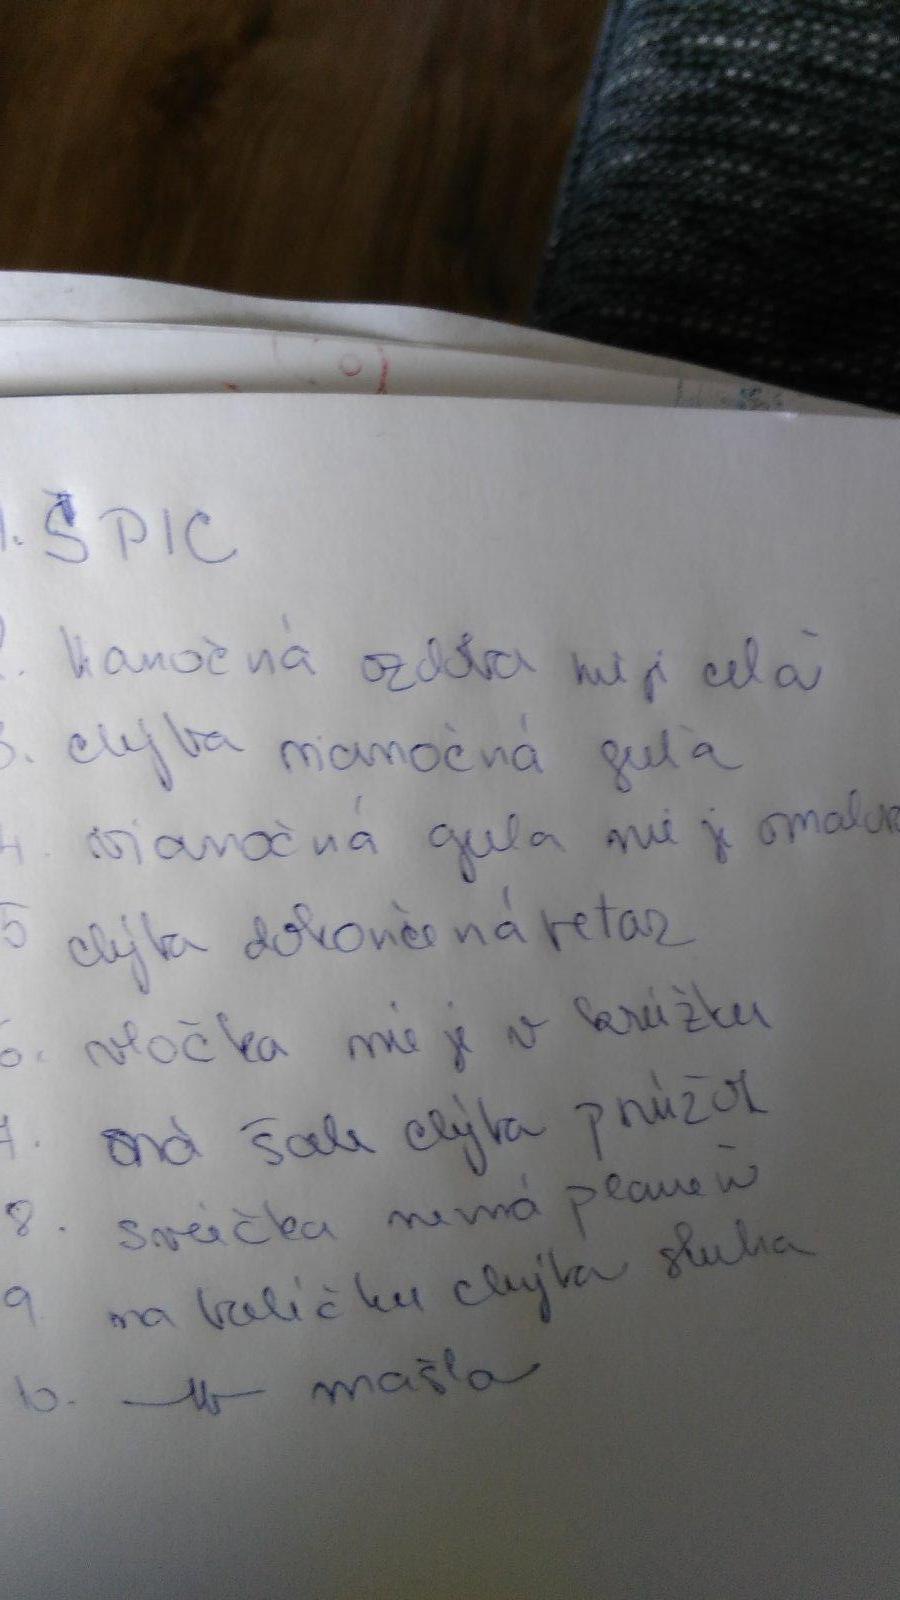 1. ŠPIC
2. Vianočná ozdoba nie je celá
3. chýba vianočná guľa
4. vianočná guľa nie je
5 chýba dokončená reťaz
6. vločka nie je v krúžku
7. na šale chýba prúžok
8. sviečka nemá plameň
9. na balíčku chýba stuha
10. —||— mašľa